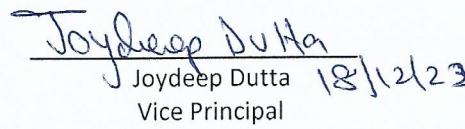 Joydeep Dutta
Joydeep Dutta 18/12/23
Vice Principal